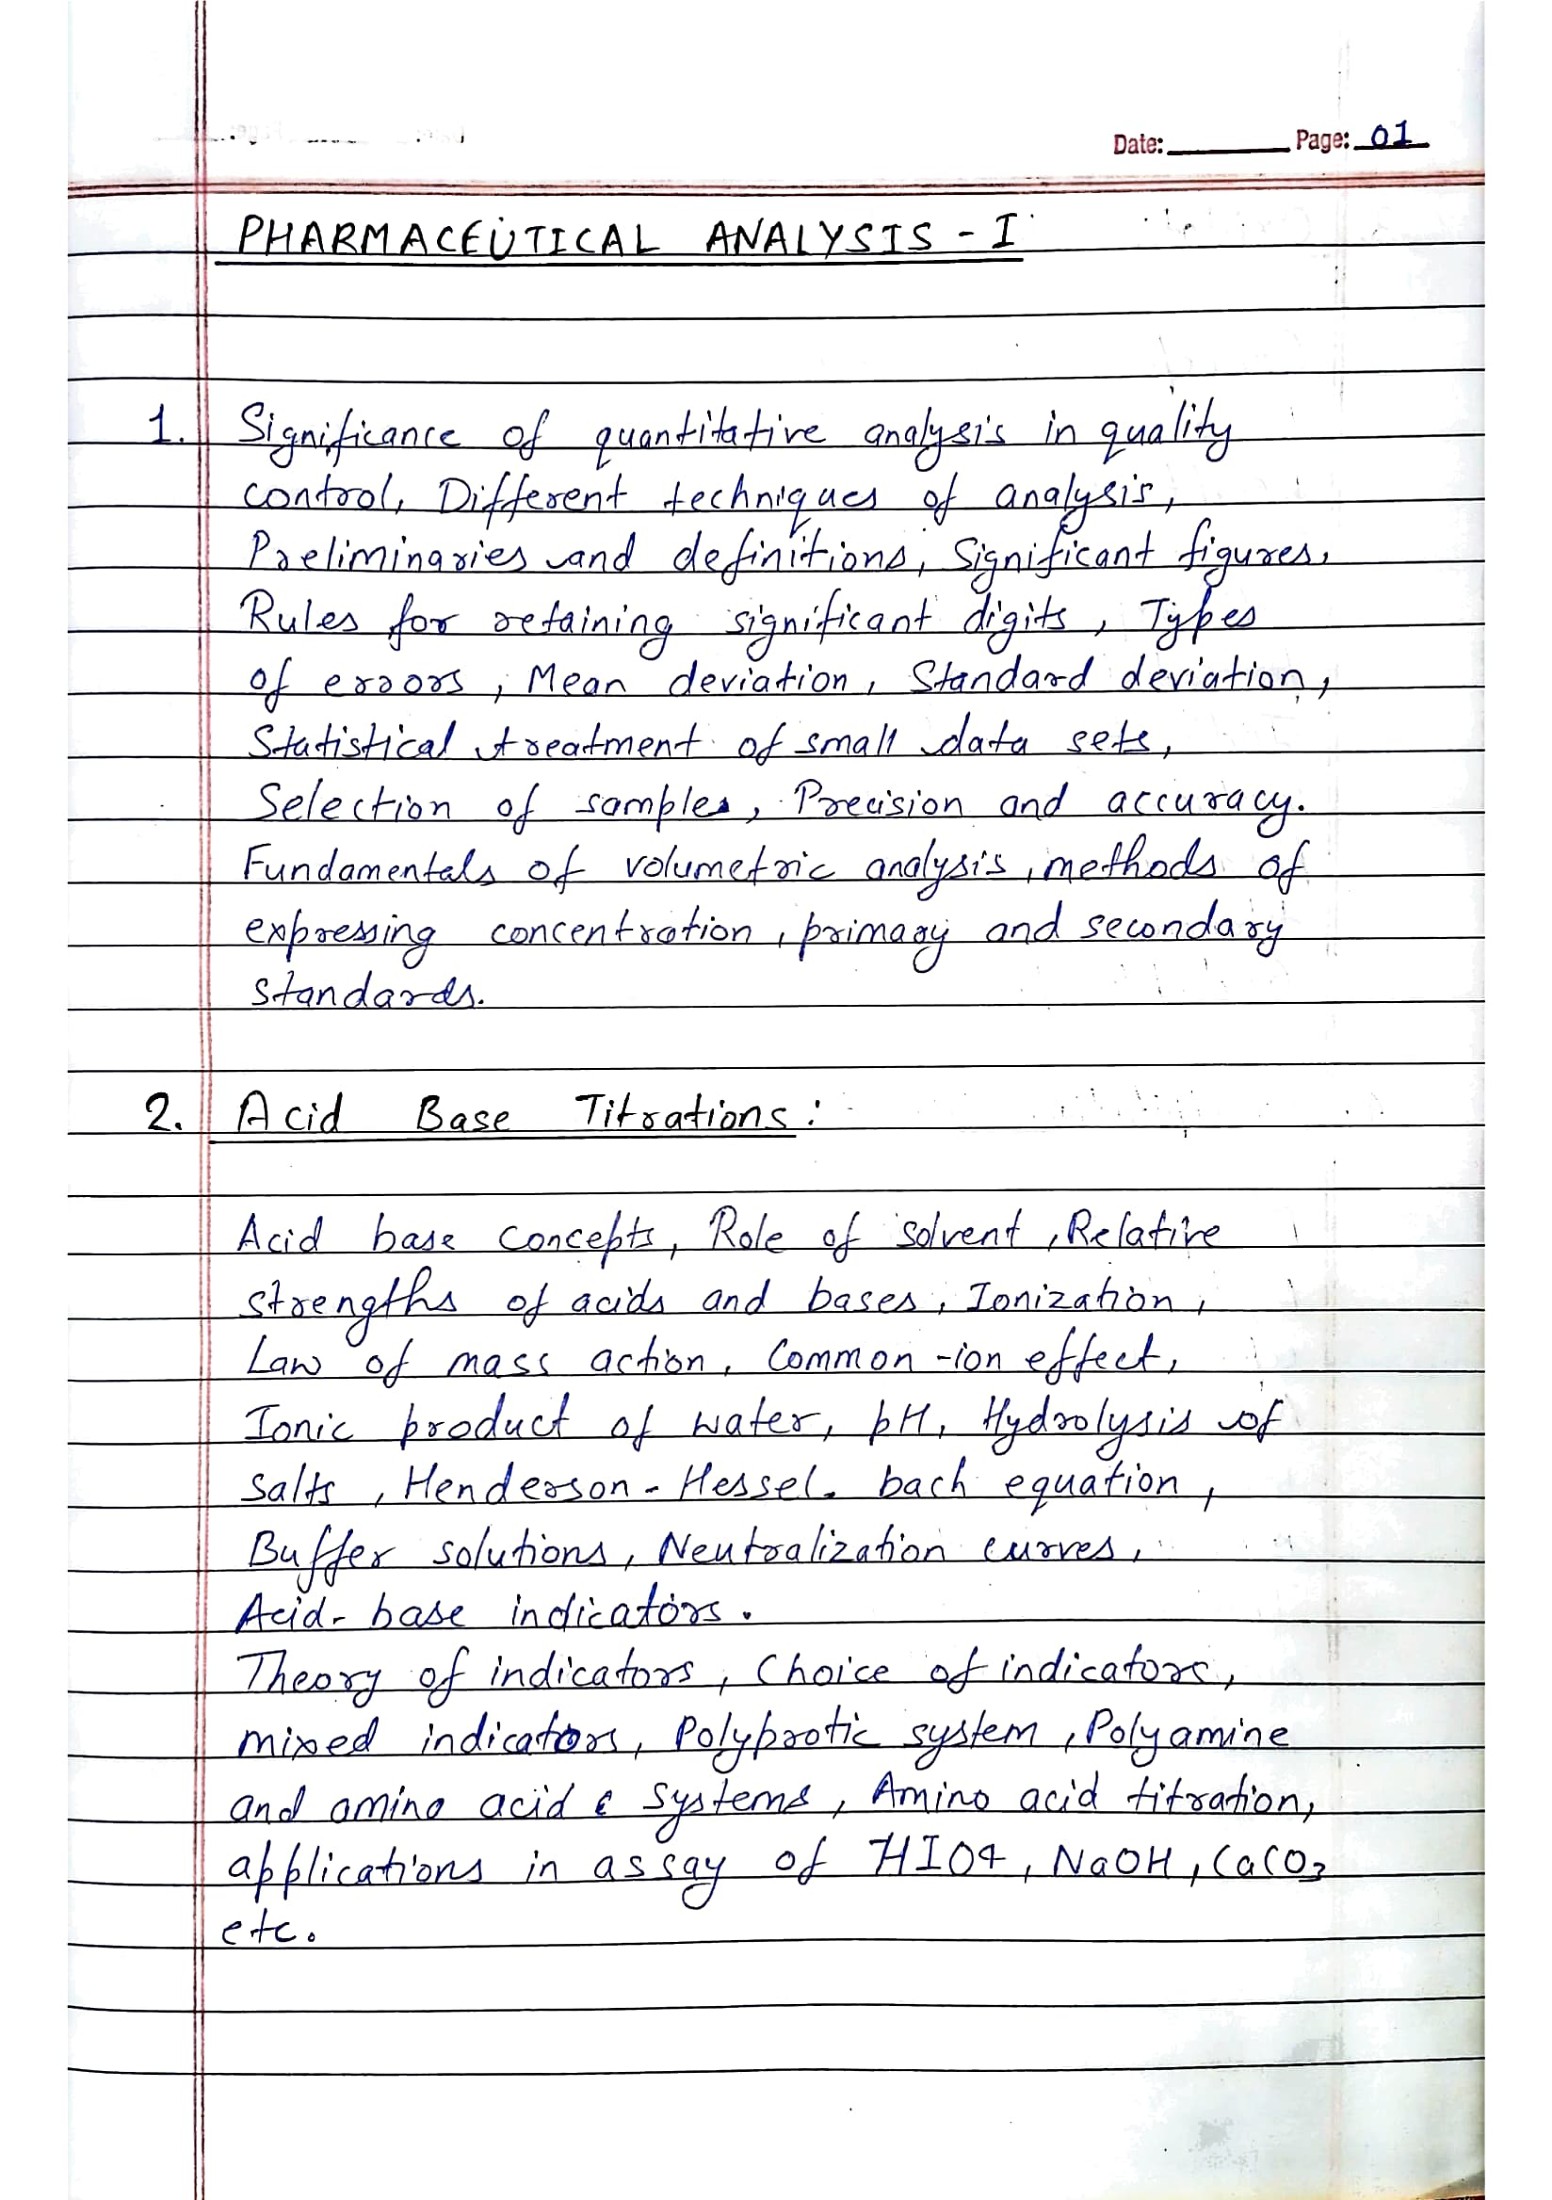 Date: Page: 01
PHARMACEUTICAL ANALYSIS - I
1. Significance of quantitative analysis in quality
control, Different techniques of analysis,
Preliminaries and definitions, Significant figures,
Rules for retaining significant digits, Types
of errors, Mean deviation, Standard deviation,
Statistical treatment of small data sets,
Selection of samples, Precision and accuracy.
Fundamentals of volumetric analysis, methods of
expressing concentration, primary and secondary
standards.
2. Acid Base Titrations:
Acid base concepts, Role of solvent, Relative
strengths of acids and bases, Ionization,
Law of mass action, Common-ion effect,
Ionic product of water, pH, Hydrolysis of
salts, Henderson-Hessel-bach equation,
Buffer solutions, Neutralization curves,
Acid-base indicators.
Theory of indicators, Choice of indicators,
mixed indicators, Polyprotic system, Polyamine
and amino acid & systems, Amino acid titration,
applications in assay of HIO4, NaOH, CaCO3
etc.